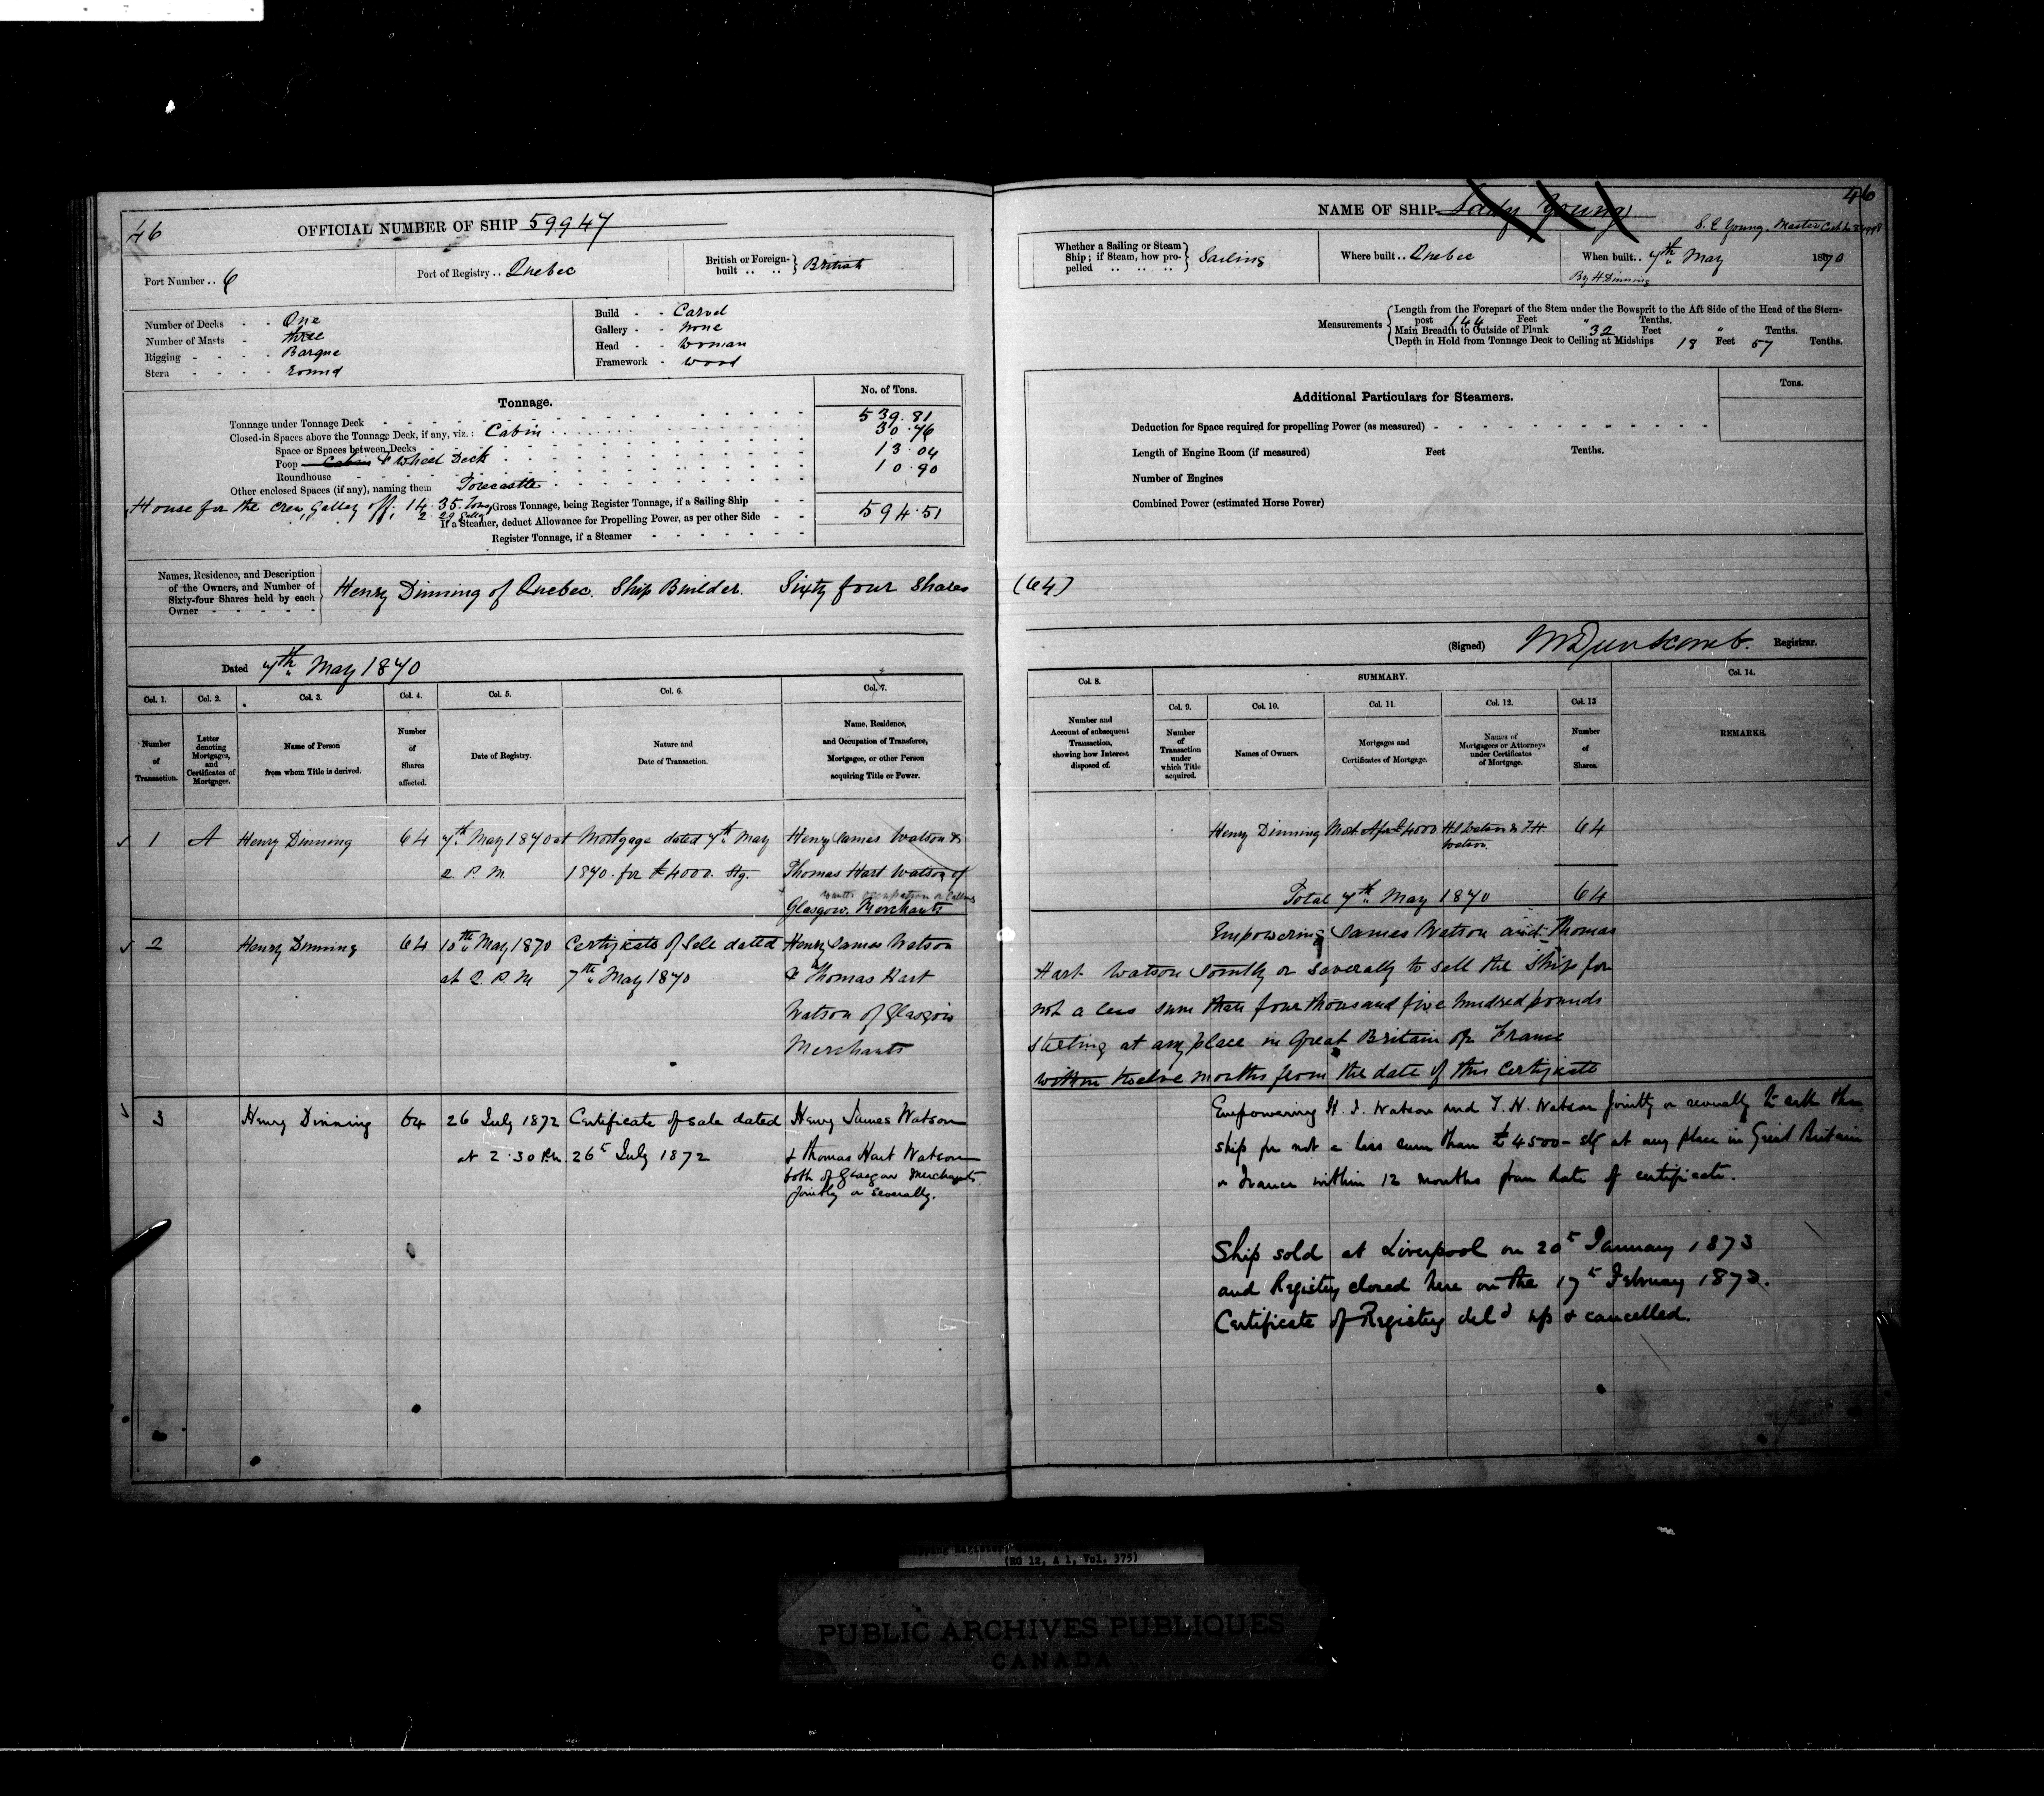 46
OFFICIAL NUMBER OF SHIP 59947
Port Number .. 6
Port of Registry .. Quebec
British or Foreign-built .. .. } British
Number of Decks - - One
Number of Masts - three
Rigging - - - - Barque
Stern - - - - round
Build - - Carvel
Gallery - - None
Head - - Woman
Framework - Wood
Tonnage.
No. of Tons.
Tonnage under Tonnage Deck 539.81
Closed-in Spaces above the Tonnage Deck, if any, viz.: Cabin 30.76
Space or Spaces between Decks 13.04
Poop Cabin & Wheel Deck 10.90
Roundhouse
Other enclosed Spaces (if any), naming them Forecastle
House for the Crew, Galley off. 14.35. Tons Gross Tonnage, being Register Tonnage, if a Sailing Ship 594.51
2.29
If a Steamer, deduct Allowance for Propelling Power, as per other Side
Register Tonnage, if a Steamer
Names, Residence, and Description of the Owners, and Number of Sixty-four Shares held by each Owner
Henry Dinning of Quebec. Ship Builder. Sixty four Shares
Dated 7th May 1870
Col. 1. Col. 2. Col. 3. Col. 4. Col. 5. Col. 6. Col. 7.
Number of Transaction.
Letter denoting Mortgages, and Certificates of Mortgages.
Name of Person from whom Title is derived.
Number of Shares affected.
Date of Registry.
Nature and Date of Transaction.
Name, Residence, and Occupation of Transferee, Mortgagee, or other Person acquiring Title or Power.
1 A Henry Dinning 64 7th May 1870 at Mortgage dated 7th May Henry James Watson &
2. P.M. 1870. for £4000. Stg. Thomas Hart Watson of
Glasgow. Merchants
2 Henry Dinning 64 10th May 1870 Certificate of Sale dated Henry James Watson
at 2. P.M 7th May 1870 & Thomas Hart
Watson of Glasgow
Merchants
3 Henry Dinning 64 26 July 1872 Certificate of sale dated Henry James Watson
at 2.30 P.M. 26th July 1872 & Thomas Hart Watson
both of Glasgow Merchants
Jointly or Severally.
46
NAME OF SHIP Lady Young
S. E Young. Master
Whether a Sailing or Steam Ship; if Steam, how propelled .. .. .. } Sailing
Where built .. Quebec
When built .. 7th May 1870
By H. Dinning
Measurements
Length from the Forepart of the Stem under the Bowsprit to the Aft Side of the Head of the Stern-
post 144 Feet " Tenths.
Main Breadth to Outside of Plank 32 Feet " Tenths.
Depth in Hold from Tonnage Deck to Ceiling at Midships 18 Feet 57 Tenths.
Additional Particulars for Steamers.
Tons.
Deduction for Space required for propelling Power (as measured)
Length of Engine Room (if measured) Feet Tenths.
Number of Engines
Combined Power (estimated Horse Power)
(64)
(Signed) Registrar.
Col. 8. SUMMARY. Col. 14.
Col. 9. Col. 10. Col. 11. Col. 12. Col. 13
Number and Account of subsequent Transaction, showing how Interest disposed of.
Number of Transaction under which Title acquired.
Names of Owners.
Mortgages and Certificates of Mortgage.
Names of Mortgagees or Attorneys under Certificates of Mortgage.
Number of Shares.
REMARKS.
Henry Dinning Mort. A for £4000 H.J. Watson & T.H. Watson. 64
Total 7th May 1870 64
Empowering James Watson and Thomas
Hart Watson Jointly or severally to sell the Ship for
not a less sum than four thousand five hundred pounds
Sterling at any place in Great Britain or France
within twelve months from the date of this Certificate
Empowering H. J. Watson and T. H. Watson Jointly or severally to sell the
ship for not a less sum than £4500- stg at any place in Great Britain
or France within 12 months from date of certificate.
Ship sold at Liverpool on 20th January 1873
and Registry closed here on the 17th February 1873.
Certificate of Registry del'd up & cancelled.
(RG 12, A 1, Vol. 375)
PUBLIC ARCHIVES PUBLIQUES
CANADA